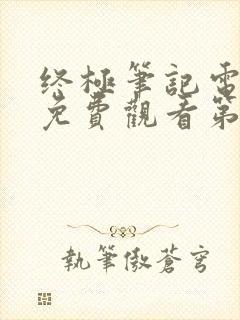 终極筆記電
免費觀看第
執筆傲蒼穹